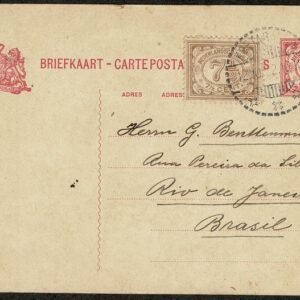 BRIEFKAART - CARTE POSTA
ADRES ADRES
7½
Herrn G. Benttenmu
Rua Pereira da Sil
Rio de Janei
Brasil